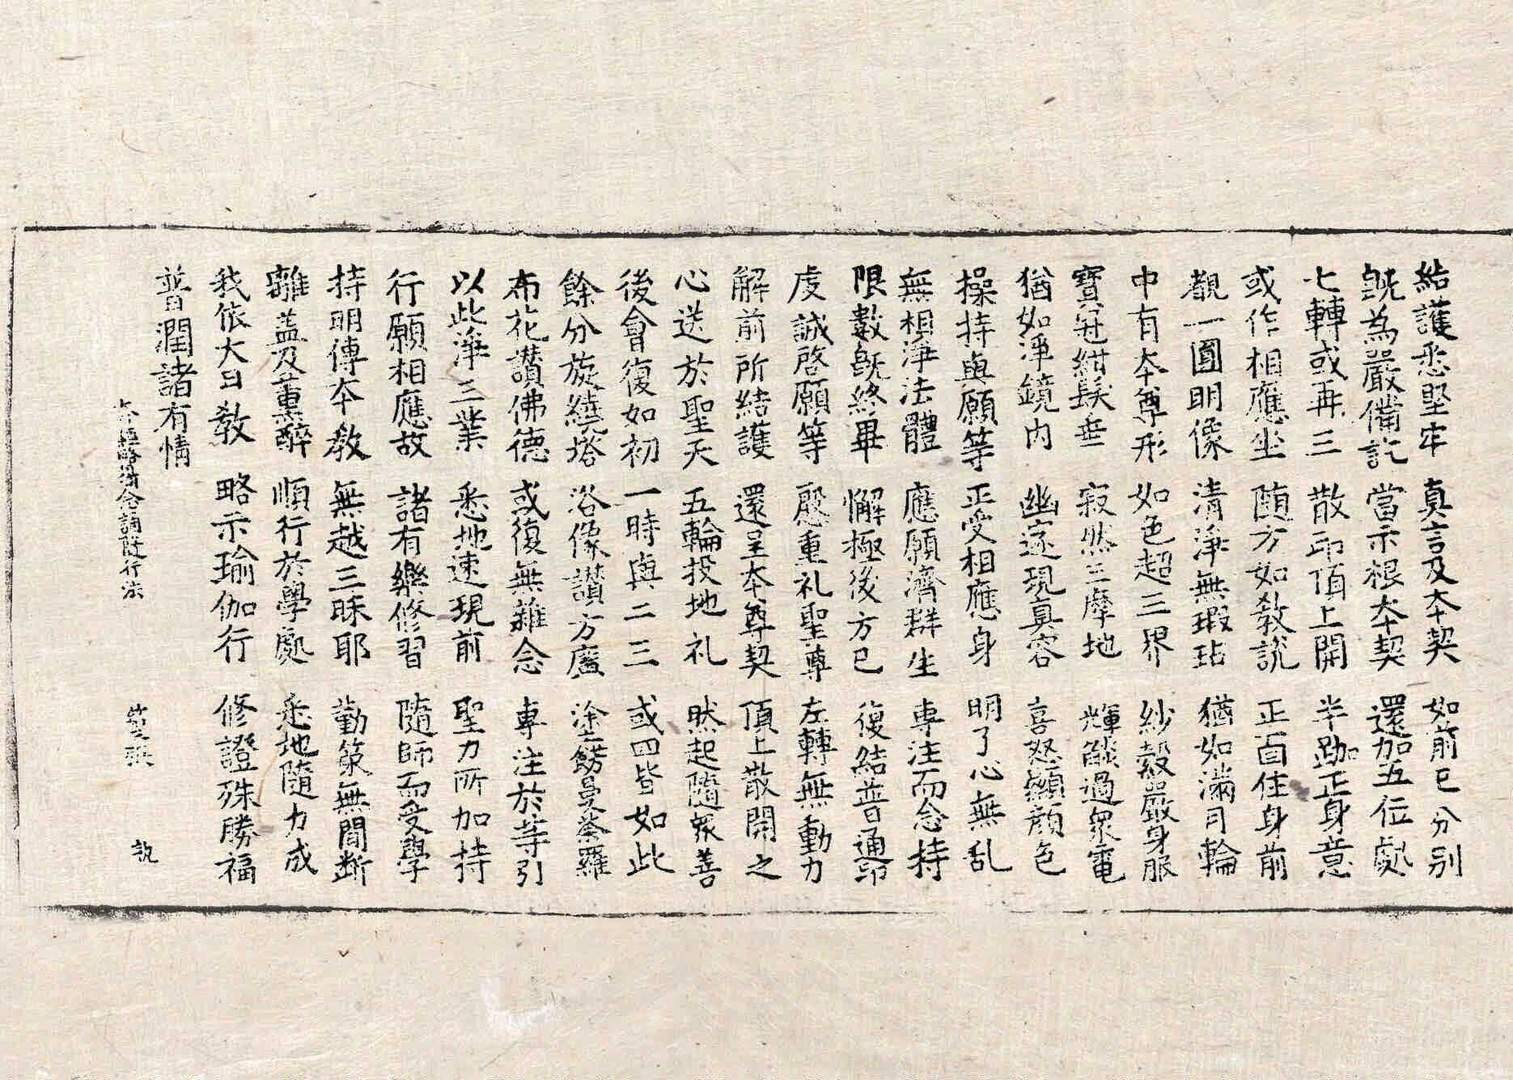 結護悉堅牢 真言及本契 如前已分別
既為嚴備訖 當示根本契 還加五位處
七轉或再三 散印頂上開 半跏正身意
或作相應坐 随方如教說 正面住身前
觀一圓明像 清淨無瑕玷 猶如滿月輪
中有本尊形 如色超三界 紗縠嚴身服
寶冠紺髮垂 寂然三摩地 輝𦦨過眾電
猶如淨鏡內 幽邃現真容 喜怒顯顏色
操持與願等 正受相應身 明了心無乱
無相淨法體 應願濟群生 專注而念持
限數既終畢 懈極後方已 復結普通印
虔誠啓願等 慇重礼聖尊 左轉無動刀
解前所結護 還呈本尊契 頂上散開之
心送於聖天 五輪投地礼 然起隨眾善
後會復如初 一時與二三 或四皆如此
餘分旋繞塔 浴像讃方廣 塗餝曼荼羅
布花讃佛德 或復無雜念 專注於等引
以此淨三業 悉地速現前 聖力所加持
行願相應故 諸有樂修習 隨師而受學
持明傳本教 無越三昧耶 勤策無間断
離盖及熏醉 順行於學處 悉地隨力成
我依大日教 略示瑜伽行 修證殊勝福
普潤諸有情
大毗盧遮那略要念誦隨行法